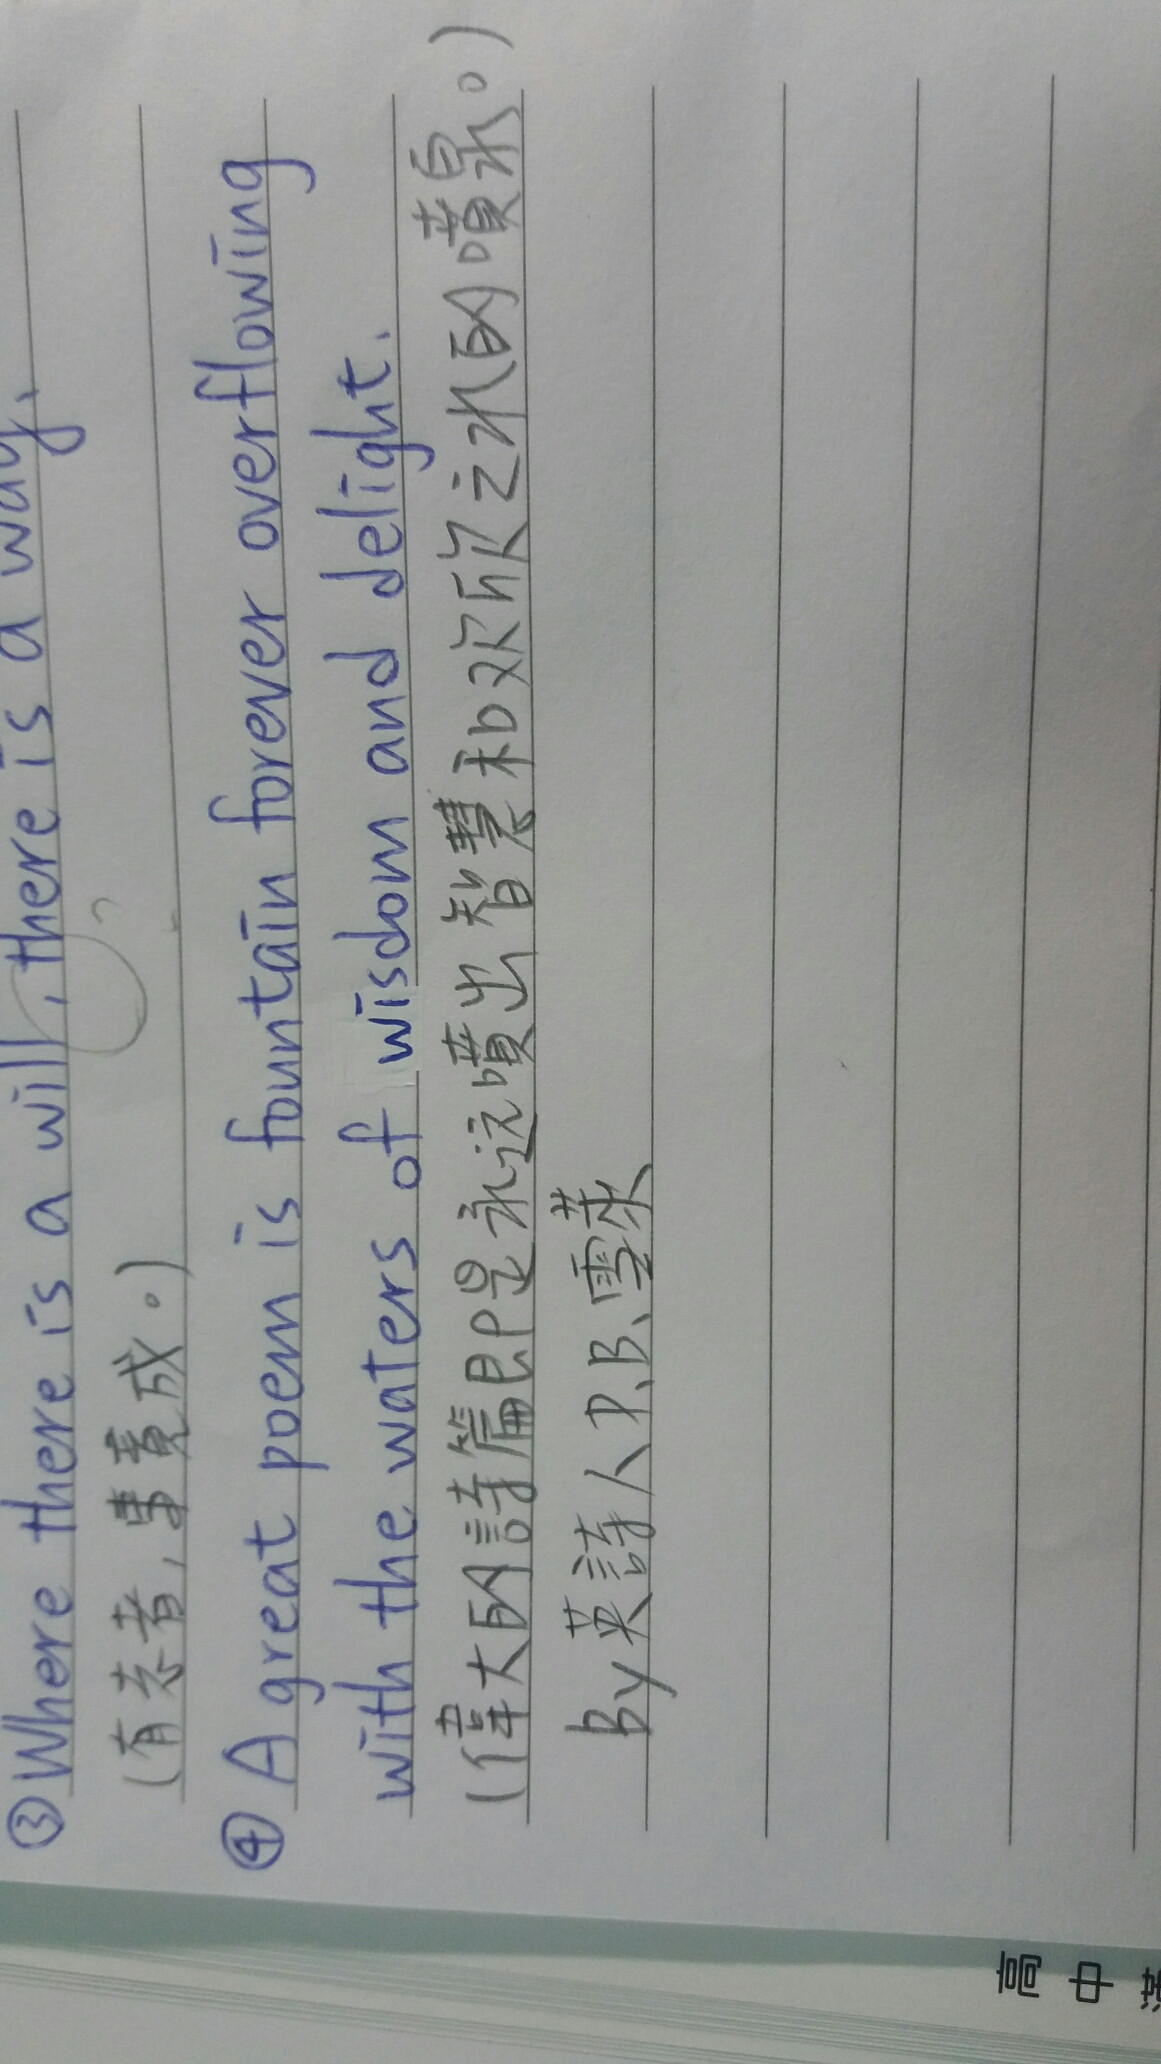 ③ Where there is a will, there is a way.
(有志者,事竟成。)
④ A great poem is fountain forever overflowing
with the waters of wisdom and delight.
(偉大的詩篇即是永远噴出智慧和欢欣之水的噴泉。)
By 英詩人P.B.雪莱
高中